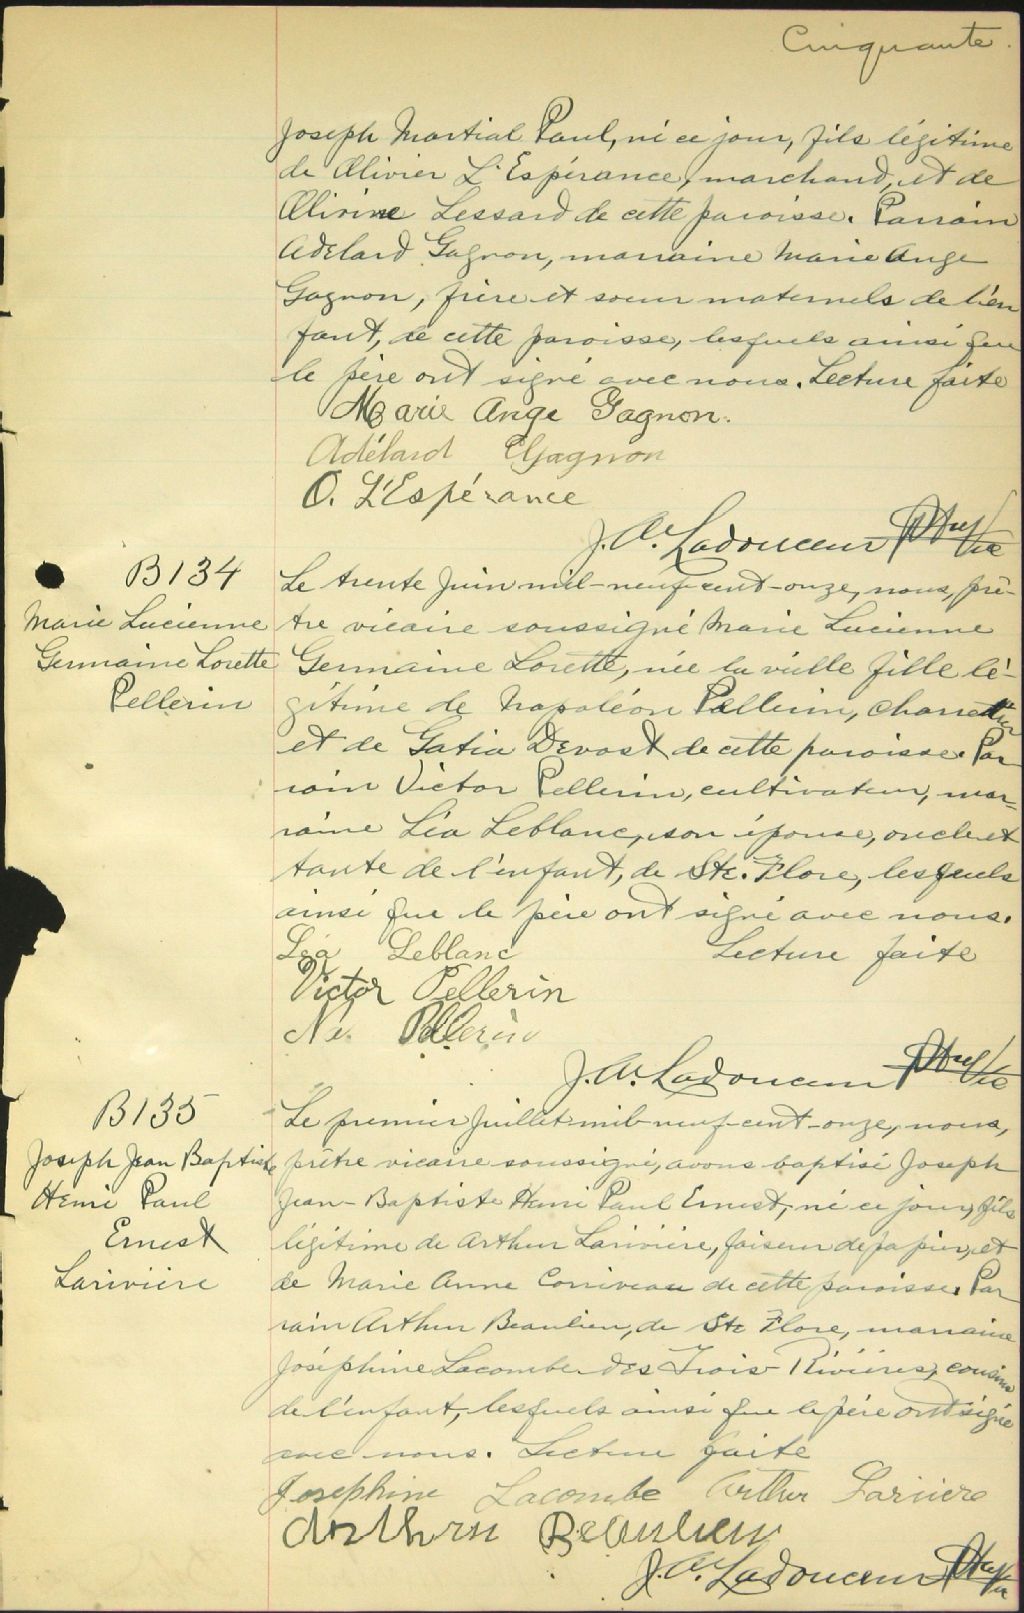 Cinquante.
Joseph Martial Paul, né ce jour, fils légitime
de Olivier L'Espérance, marchand, et de
Olivine Lessard de cette paroisse. Parrain
Adélard Gagnon, marraine Marie Ange
Gagnon, frère et soeur maternels de l'en
fant, de cette paroisse, lesquels ainsi que
le père ont signé avec nous. Lecture faite
Marie Ange Gagnon.
Adélard Gagnon
O. L'Espérance
J. A. Ladouceur Ptre Vic
B134
Marie Lucienne
Germaine Lorette
Pellerin
Le trente Juin mil-neuf-cent-onze, nous, prê-
tre vicaire soussigné Marie Lucienne
Germaine Lorette, née la veille fille lé-
gitime de Napoléon Pellerin, charretier
et de Gatia Devost de cette paroisse. Par
rain Victor Pellerin, cultivateur, mar-
raine Léa Leblanc, son épouse, oncle et
tante de l'enfant, de Ste. Flore, lesquels
ainsi que le père ont signé avec nous.
Léa Leblanc Lecture faite
Victor Pellerin
Pellerin
J. A. Ladouceur Ptre Vic
B135
Joseph Jean Baptiste
Henri Paul
Ernest
Larivière
Le premier Juillet mil-neuf-cent-onze, nous,
prêtre vicaire soussigné, avons baptisé Joseph
Jean-Baptiste Henri Paul Ernest, né ce jour, fils
légitime de Arthur Larivière, faiseur de papier, et
de Marie Anne Corriveau de cette paroisse. Par
rain Arthur Beaulieu, de Ste Flore, marraine
Joséphine Lacombe des Trois-Rivières, cousins
de l'enfant, lesquels ainsi que le père ont signé
avec nous. Lecture faite
Josephine Lacombe Arthur Lariviere
Arthur Beaulieu
J. A. Ladouceur Ptre Vic